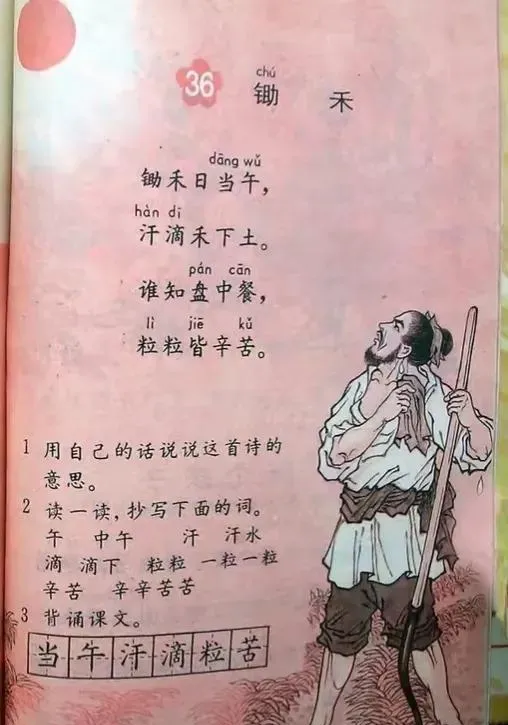 36 锄 禾
chú
dāng wǔ
锄禾日当午，
hàn dī
汗滴禾下土。
pán cān
谁知盘中餐，
lì jiē kǔ
粒粒皆辛苦。
1 用自己的话说说这首诗的
意思。
2 读一读，抄写下面的词。
午 中午 汗 汗水
滴 滴下 粒粒 一粒一粒
辛苦 辛辛苦苦
3 背诵课文。
当午汗滴粒苦